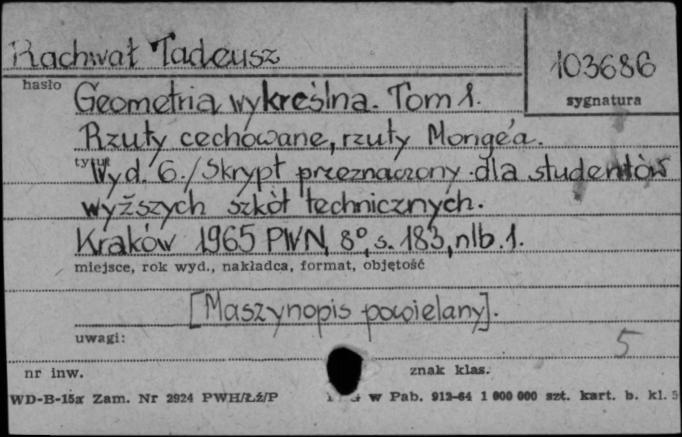 Rachwał Tadeusz
103686
hasło
sygnatura
Geometria wykreślna. Tom 1.
Rzuty cechowane, rzuty Monge'a.
tytuł
Wyd. 6. /Skrypt przeznaczony dla studentów
wyższych szkół technicznych.
Kraków 1965 PWN, 8°, s. 183, nlb. 1.
miejsce, rok wyd., nakładca, format, objętość
[Maszynopis powielany].
uwagi:
5
nr inw.
znak klas.
WD-B-15a Zam. Nr 2924 PWH/Łź/P
w Pab. 912-64 1 000 000 szt. kart. b. kl.